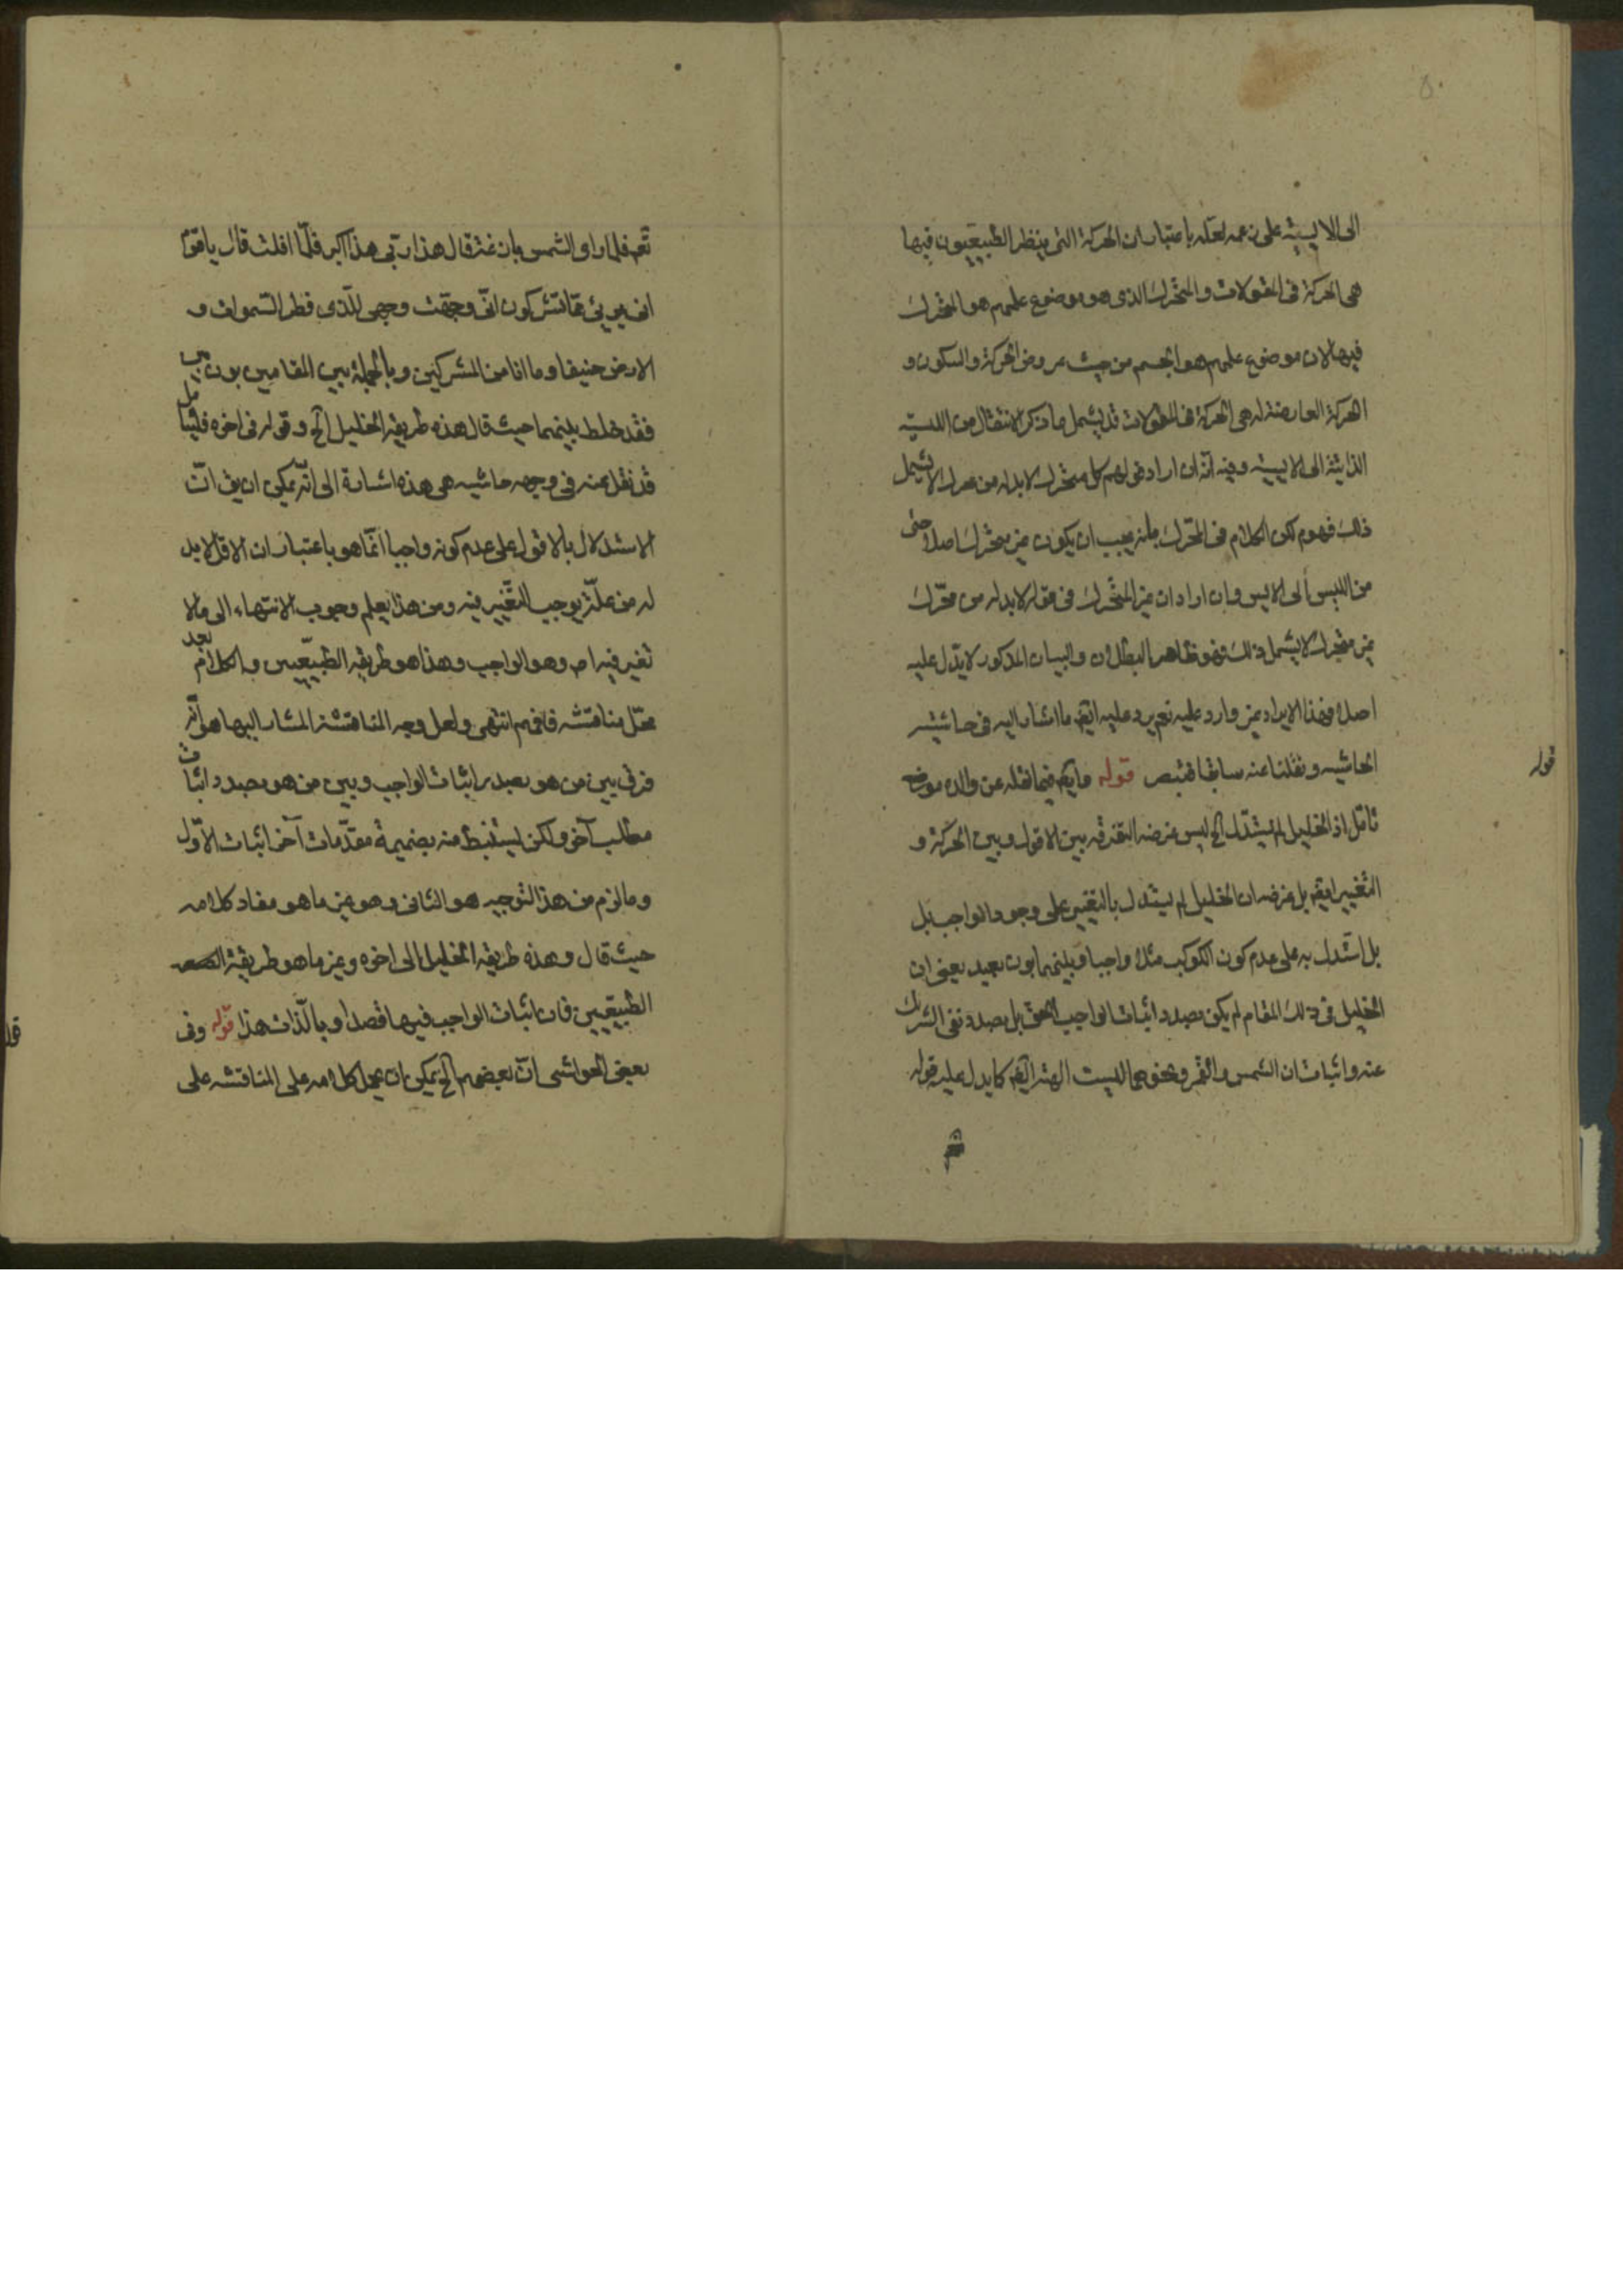 الى الايسية على زعمه لعله باعتبار ان الحركة التى ينظر الطبيعيون فيها
هى الحركة فى المقولات والمتحرك الذى هو موضوع علمهم هو المتحرك
فيها لان موضوع علمهم هو الجسم من حيث عروض الحركة والسكون و
الحركة العارضة له هى الحركة فى المقولات قد يشمل ما ذكر الانتقال من الليسية
الذاتية الى الايسية وفيه انه ان اراد قولهم كل متحرك لابد له من محرك لا يشمل
ذلك فهو كون الكلام فى المتحرك يجب ان يكون غير متحرك اصلا حتى
من الليس الى الايس وان اراد ان غير المتحرك فى قوله لابد له من محرك
غير متحرك لا يشمل ذلك فهو ظاهر البطلان والبيان المذكور لا يدل عليه
اصلا فهذا الايراد غير وارد عليه نعم يرد عليه ايضا ما اشار اليه فى حاشية
الحاشيه ونقلنا عنه سابقا فتبصر قوله فيما نقله عن والده موضع
تأمل اذ الخليل لم يستدل الخ ليس غرضه التفرقه بين الافول وبين الحركة و
التغيير ايضا بل غرضه ان الخليل لم يستدل بالتغيير على وجود الواجب بل
بل استدل به على عدم كون الكوكب مثلا واجبا وبينهما بون بعيد يعنى ان
الخليل فى ذلك المقام لم يكن بصدد اثبات الواجب الحق بل بصدد نفى الشرك
عنه واثبات ان الشمس والقمر ونحوهما ليست الهة ايضا كما يدل عليه قوله
قوله
تعم فلما راى الشمس بازغة قال هذا ربى هذا اكبر فلما افلت قال يا قوم
انى برئ مما تشركون انى وجهت وجهى للذى فطر السموات و
الارض حنيفا وما انا من المشركين وبالجملة بين المقامين بون بين
فقد خلط بينهما حيث قال هذه طريقة الخليل الخ وقوله فى اخره فليتأمل
قد نقل عنه فى وجهه حاشيه هى هذه اشارة الى انه يمكن ان يق ان
الاستدلال بالافول على عدم كونه واجبا انما هو باعتبار ان الافل لابد
له من علة يوجب التغيير فيه ومن هذا يعلم وجوب الانتهاء الى ما لا
تغير فيه اصلا وهو الواجب وهذا هو طريقة الطبيعيين والكلام بعد
محل مناقشه فافهم انتهى ولعل وجه المناقشة المشار اليها هو انه
فرق بين من هو بصدد اثبات الواجب وبين من هو بصدد اثبات
مطلب آخر ولكن يستنبط منه بضميمة مقدمات آخر اثبات الاول
وما لزم من هذا التوجيه هو الثانى وهو غير ما هو مفاد كلامه
حيث قال وهذه طريقة الخليل الى اخره وغير ما هو طريقة
الطبيعيين فان اثبات الواجب فيها قصدا وبالذات هذا قوله وفى
بعض الحواشى ان بعضهم الخ يمكن ان يحمل كلامه على المناقشه على